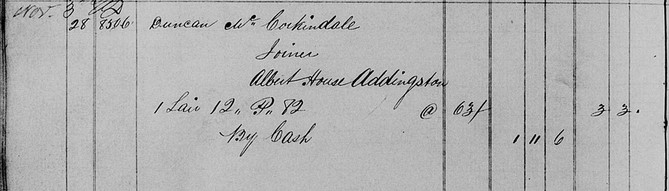 Nov.
28 8506 Duncan Mc Corkindale
Joiner
Albert House Addingston
1 Lair 12 " P " 82 @ 63/ 3 3 .
By Cash 1 11 6